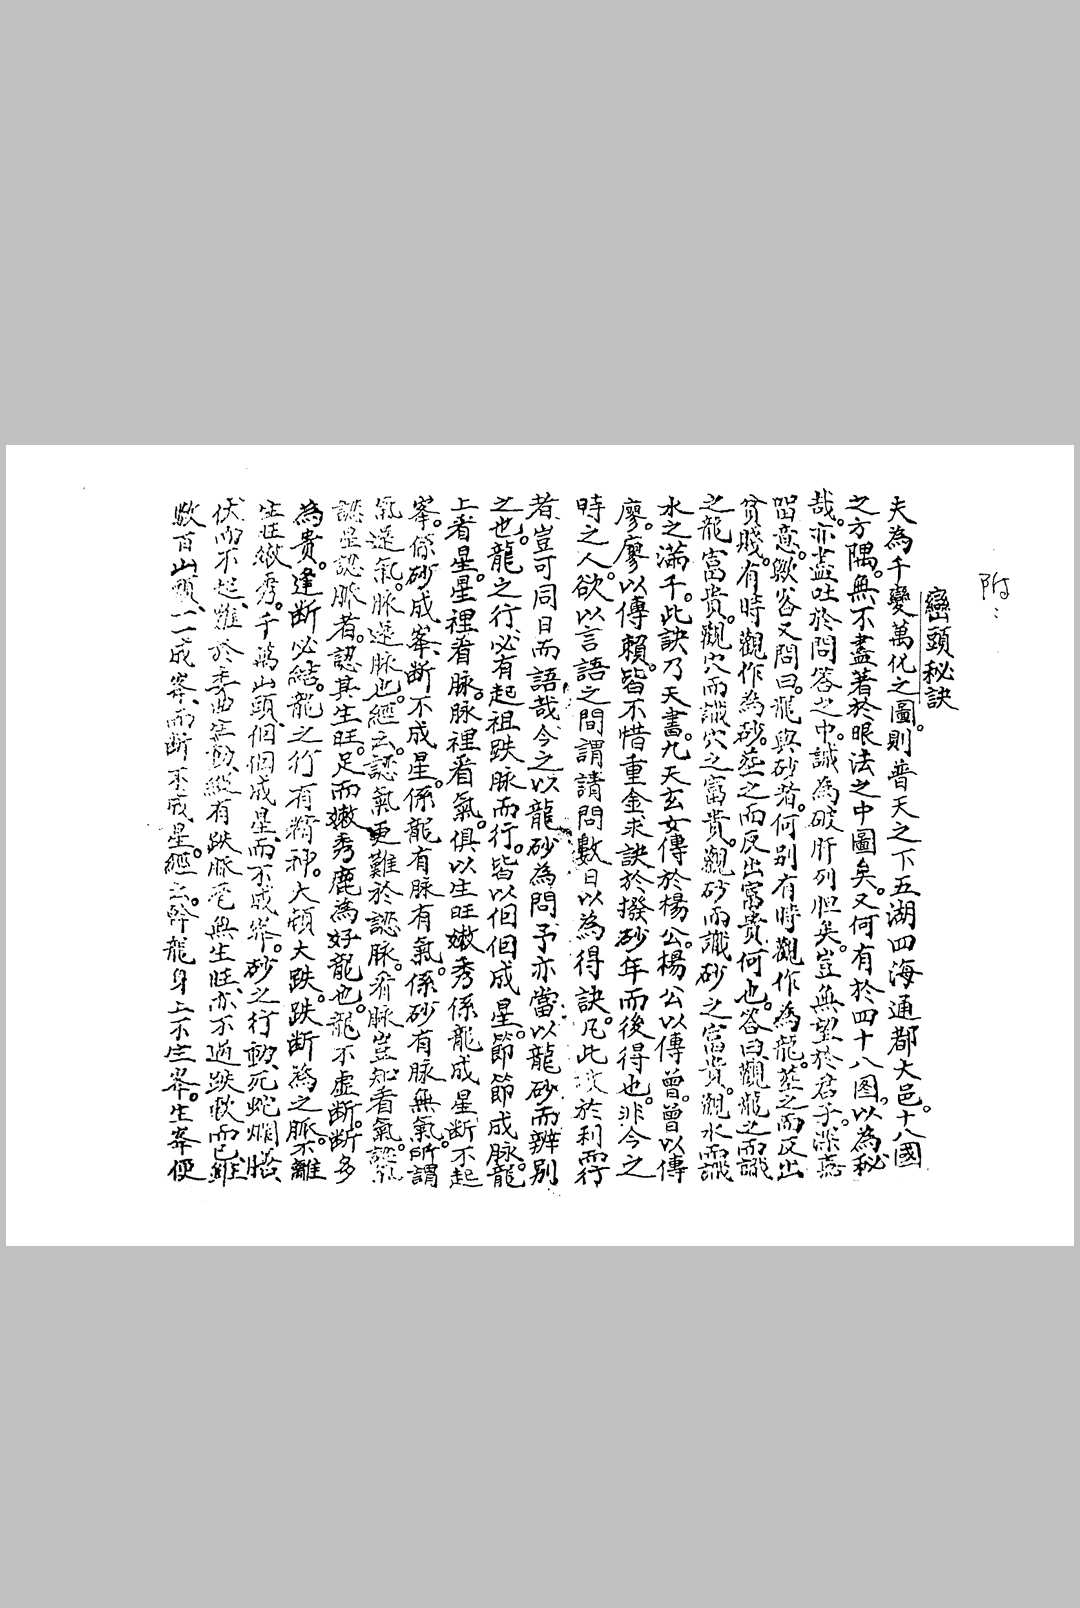 附：
巒頭秘訣
夫為千變萬化之圖。則普天之下五湖四海通都大邑。十八國
之方隅。無不盡著於眼法之中圖矣。又何有於四十八图。以為秘
哉。亦盡吐於問答之中。誠為破肝列胆矣。豈無望於君子。
留意。歟客又問曰。龍與砂者。何别有時觀作為龍。塟之而反出
貧賤。有時觀作為砂。塟之而反出富貴何也。答曰觀龍之而識
之龍富貴。觀穴而識穴之富貴。觀砂而識砂之富貴。觀水而識
水之滿千。此訣乃天書。九天玄女傳於楊公。楊公以傳曾。曾以傳
廖。廖以傳賴。皆不惜重金求訣於撥砂年而後得也。非今之
時之人。欲以言語之間謂請問數日以為得訣。凡此於利而行
者。豈可同日而語哉。今之以龍砂為問予亦當以龍砂而辨别
之也。龍之行必有起祖跌脉而行。皆以個個成星。節節成脉。龍
上看星。星裡看脉。脉裡看氣。俱以生旺嫩秀係龍成星断不起
峯。係砂成峯、断不成星。係龍有脉有氣。係砂有脉無氣。所謂
氣逆氣。脉逆脉也。經云。認氣更難於認脉。看脉豈知看氣。認氣
認星認脈者。認其生旺。足而嫩秀鹿為好龍也。龍不虚断。断多
為貴。逢断必結。龍之行有精神。大頓大跌。跌断為之脈。不離
生旺嫩秀。千萬山頭、個個成星、而不成峯。砂之行、軟死蛇
伏而不起、雖於委曲縱有跌脈毫無生旺、亦不過跌軟而已、雖
數百山頭、一一成峯、而断不成星。經云。幹龍身上不生峯。生峯便